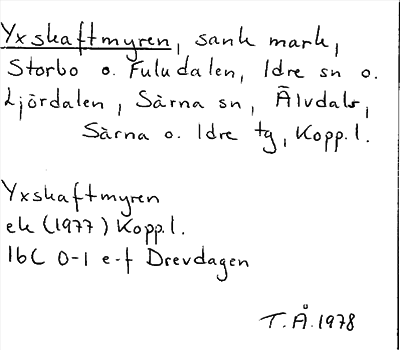 Yxskaftmyren, sank mark,
Storbo o. Fuludalen, Idre sn o.
Ljördalen, Särna sn, Älvdals,
Särna o. Idre tg, Kopp. l.
Yxskaftmyren
ek (1977) Kopp. l.
16C 0-1 e-f Drevdagen
T.Å. 1978